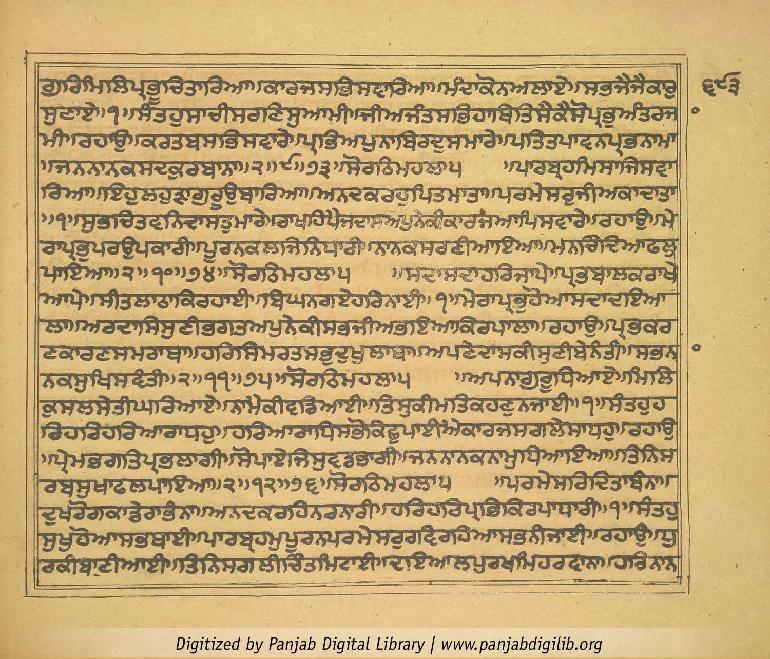 ਗੁਰਿਮਿਲਿਪ੍ਰਭੂਚਿਤਾਰਿਆ॥ਕਾਰਜਸਭਿਸਵਾਰਿਆ॥ਮੰਦਾਕੋਨਅਲਾਏ॥ਸਭਜੈਜੈਕਾਰੁ
੬੯੩
ਸੁਣਾਏ॥੧॥ਸੰਤਹੁਸਾਚੀਸਰਣਿਸੁਆਮੀ॥ਜੀਅਜੰਤਸਭਿਹਾਥਿਤਿਸੈਕੈਸੋਪ੍ਰਭੁਅੰਤਰਜਾ
ਮੀ॥ਰਹਾਉ॥ਕਰਤਬਸਭਿਸਵਾਰੇ॥ਪ੍ਰਭਿਅਪੁਨਾਬਿਰਦੁਸਮਾਰੇ॥ਪਤਿਤਪਾਵਨਪ੍ਰਭਨਾਮਾ
॥ਜਨਨਾਨਕਸਦਕੁਰਬਾਨਾ॥੨॥੯॥੭੩॥ਸੋਰਠਿਮਹਲਾ੫ ॥ਪਾਰਬ੍ਰਹਮਿਸਾਜਿਸਵਾ
ਰਿਆ॥ਇਹੁਲਹੁੜਾਗੁਰੂਉਬਾਰਿਆ॥ਅਨਦਕਰਹੁਪਿਤਮਾਤਾ॥ਪਰਮੇਸਰੁਜੀਅਕਾਦਾਤਾ
॥੧॥ਸੁਭਚਿਤਵਨਿਦਾਸਤੁਮਾਰੇ॥ਰਾਖਹਿਪੈਜਦਾਸਅਪੁਨੇਕੀਕਾਰਜਆਪਿਸਵਾਰੇ॥ਰਹਾਉ॥ਮੇ
ਰਾਪ੍ਰਭੁਪਰਉਪਕਾਰੀ॥ਪੂਰਨਕਲਜਿਨਿਧਾਰੀ॥ਨਾਨਕਸਰਣੀਆਇਆ॥ਮਨਚਿੰਦਿਆਫਲੁ
ਪਾਇਆ॥੨॥੧੦॥੭੪॥ਸੋਰਠਿਮਹਲਾ੫ ॥ਸਦਾਸਦਾਹਰਿਜਾਪੇ॥ਪ੍ਰਭਬਾਲਕਰਾਖੇ
ਆਪੇ॥ਸੀਤਲਾਠਾਕਿਰਹਾਈ॥ਬਿਘਨਗਏਹਰਿਨਾਈ॥੧॥ਮੇਰਾਪ੍ਰਭੁਹੋਆਸਦਾਦਇਆ
ਲਾ॥ਅਰਦਾਸਿਸੁਣੀਭਗਤਅਪੁਨੇਕੀਸਭਜੀਅਭਇਆਕਿਰਪਾਲਾ॥ਰਹਾਉ॥ਪ੍ਰਭਕਰ
ਣਕਾਰਣਸਮਰਾਥਾ॥ਹਰਿਸਿਮਰਤਸਭੁਦੁਖੁਲਾਥਾ॥ਅਪਣੇਦਾਸਕੀਸੁਣੀਬੇਨੰਤੀ॥ਸਭਨਾ
ਨਕਸੁਖਿਸਵੰਤੀ॥੨॥੧੧॥੭੫॥ਸੋਰਠਿਮਹਲਾ੫ ॥ਅਪਨਾਗੁਰੂਧਿਆਏ॥ਮਿਲਿ
ਕੁਸਲਸੇਤੀਘਰਿਆਏ॥ਨਾਮੈਕੀਵਡਿਆਈ॥ਤਿਸੁਕੀਮਤਿਕਹਣੁਨਜਾਈ॥੧॥ਸੰਤਹੁਹ
ਰਿਹਰਿਹਰਿਆਰਾਧਹੁ॥ਹਰਿਆਰਾਧਿਸਭੋਕਿਛੁਪਾਈਐਕਾਰਜਸਗਲੇਸਾਧਹੁ॥ਰਹਾਉ
॥ਪ੍ਰੇਮਭਗਤਿਪ੍ਰਭਲਾਗੀ॥ਸੋਪਾਏਜਿਸੁਵਡਭਾਗੀ॥ਜਨਨਾਨਕਨਾਮੁਧਿਆਇਆ॥ਤਿਨਿਸ
ਰਬਸੁਖਾਫਲਪਾਇਆ॥੨॥੧੨॥੭੬॥ਸੋਰਠਿਮਹਲਾ੫ ॥ਪਰਮੇਸਰਿਦਿਤਾਬੰਨਾ॥
ਦੁਖਰੋਗਕਾਡੇਰਾਭੰਨਾ॥ਅਨਦਕਰਹਿਨਰਨਾਰੀ॥ਹਰਿਹਰਿਪ੍ਰਭਿਕਿਰਪਾਧਾਰੀ॥੧॥ਸੰਤਹੁ
ਸੁਖੁਹੋਆਸਭਥਾਈ॥ਪਾਰਬ੍ਰਹਮੁਪੂਰਨਪਰਮੇਸਰੁਰਵਿਰਹਿਆਸਭਨੀਜਾਈ॥ਰਹਾਉ॥ਧੁ
ਰਕੀਬਾਣੀਆਈ॥ਤਿਨਿਸਗਲੀਚਿੰਤਮਿਟਾਈ॥ਦਇਆਲਪੁਰਖਮਿਹਰਵਾਨਾ॥ਹਰਿਨਾਨ
Digitized by Panjab Digital Library | www.panjabdigilib.org